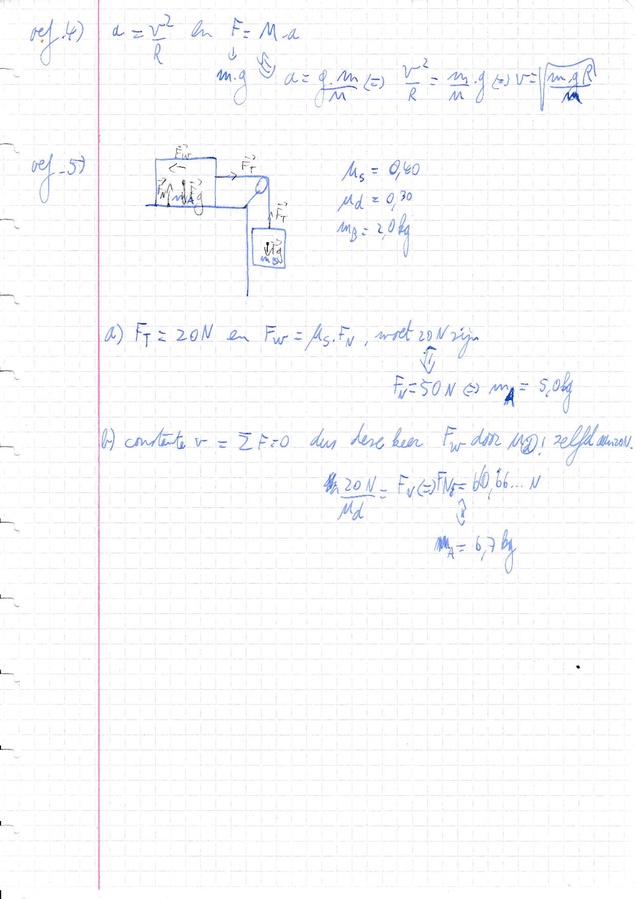 oef.4) a = v²/R en F = M·a
m·g ⇕ a = g·m/M ⇔ v²/R = m/M·g ⇔ v = √(m·g·R/M)
oef.5)
F⃗w F⃗T
F⃗N mA F⃗g
F⃗T
F⃗g
mB
μs = 0,40
μd = 0,30
mB = 2,0 kg
a) FT = 20N en Fw = μs·FN, moet 20N zijn
FN = 50N ⇔ mA = 5,0kg
b) constante v = ΣF=0 dus deze keer Fw door μD! zelfde 20N.
20N/μd = FN ⇔ FN = 60,66... N
mA = 6,7 kg